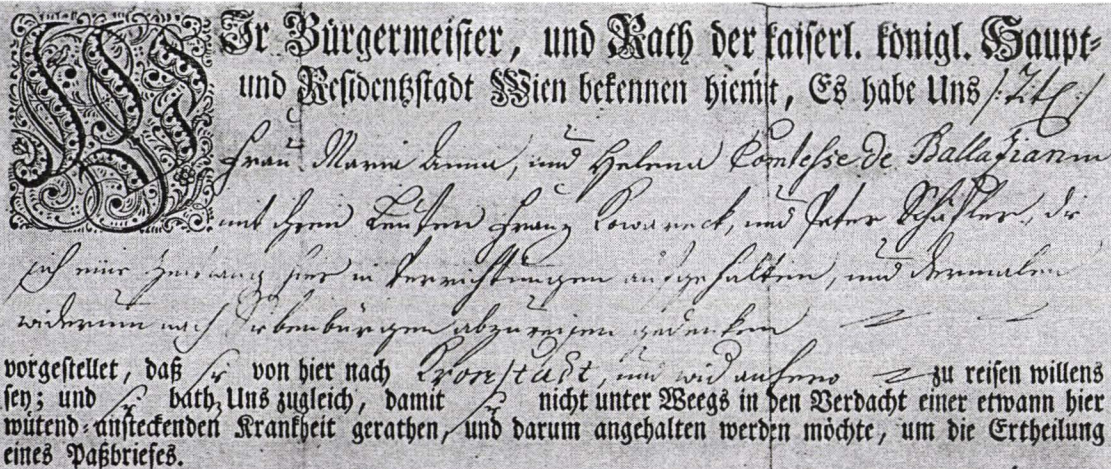 WIr Bürgermeister, und Rath der kaiserl. königl. Haupt-
und Residentzstadt Wien bekennen hiemit, Es habe Uns /: Titl :/
Frau Maria Anna, und Helena Comtesse de
mit ihren Leuten Franz Kowareck, und Peter Schäßler, die
sich eine hier in Verrichtungen aufgehalten, und dermalen
widerum nach Sibenbürgen abzureisen gedenken
vorgestellet, daß Sie von hier nach Kronstadt, und zu reisen willens
sey; und Sie bath Uns zugleich, damit Sie nicht unter Weegs in den Verdacht einer etwann hier
wütend-ansteckenden Krankheit gerathen, und darum angehalten werden möchte, um die Ertheilung
eines Paßbriefes.